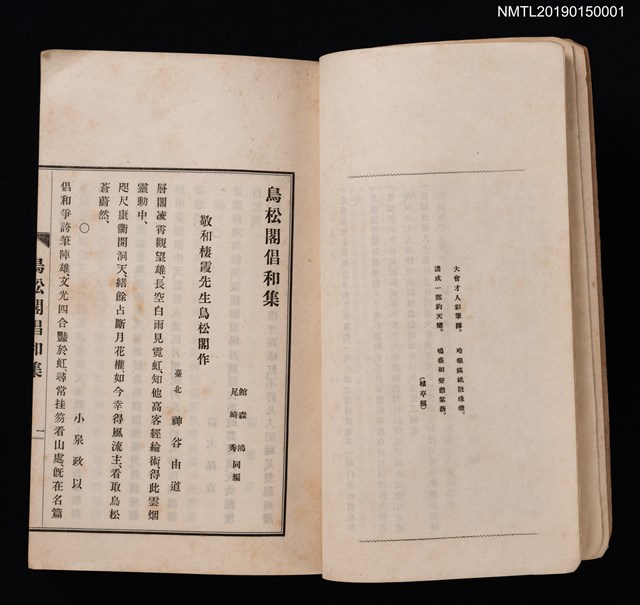 NMTL20190150001
大會才人彩筆揮。吟
譜成一部鈞天樂。鳴盛和聲
鳥松閣倡和集
館森鴻
尾崎秀 同編
敬和棲霞先生鳥松閣作
臺北 神谷由道
層閣凌霄觀望雄、長空白雨見霓虹、知他高客經綸術、得此雲烟
靈動中、
咫尺康衢開洞天、緒餘占斷月花權、如今幸得風流主、看取鳥松
蒼蔚然、
〇 小泉政以
倡和爭誇筆陣雄、文光四合豔於虹、尋常挂笏看山處、旣在名篇
鳥松閣倡和集 一